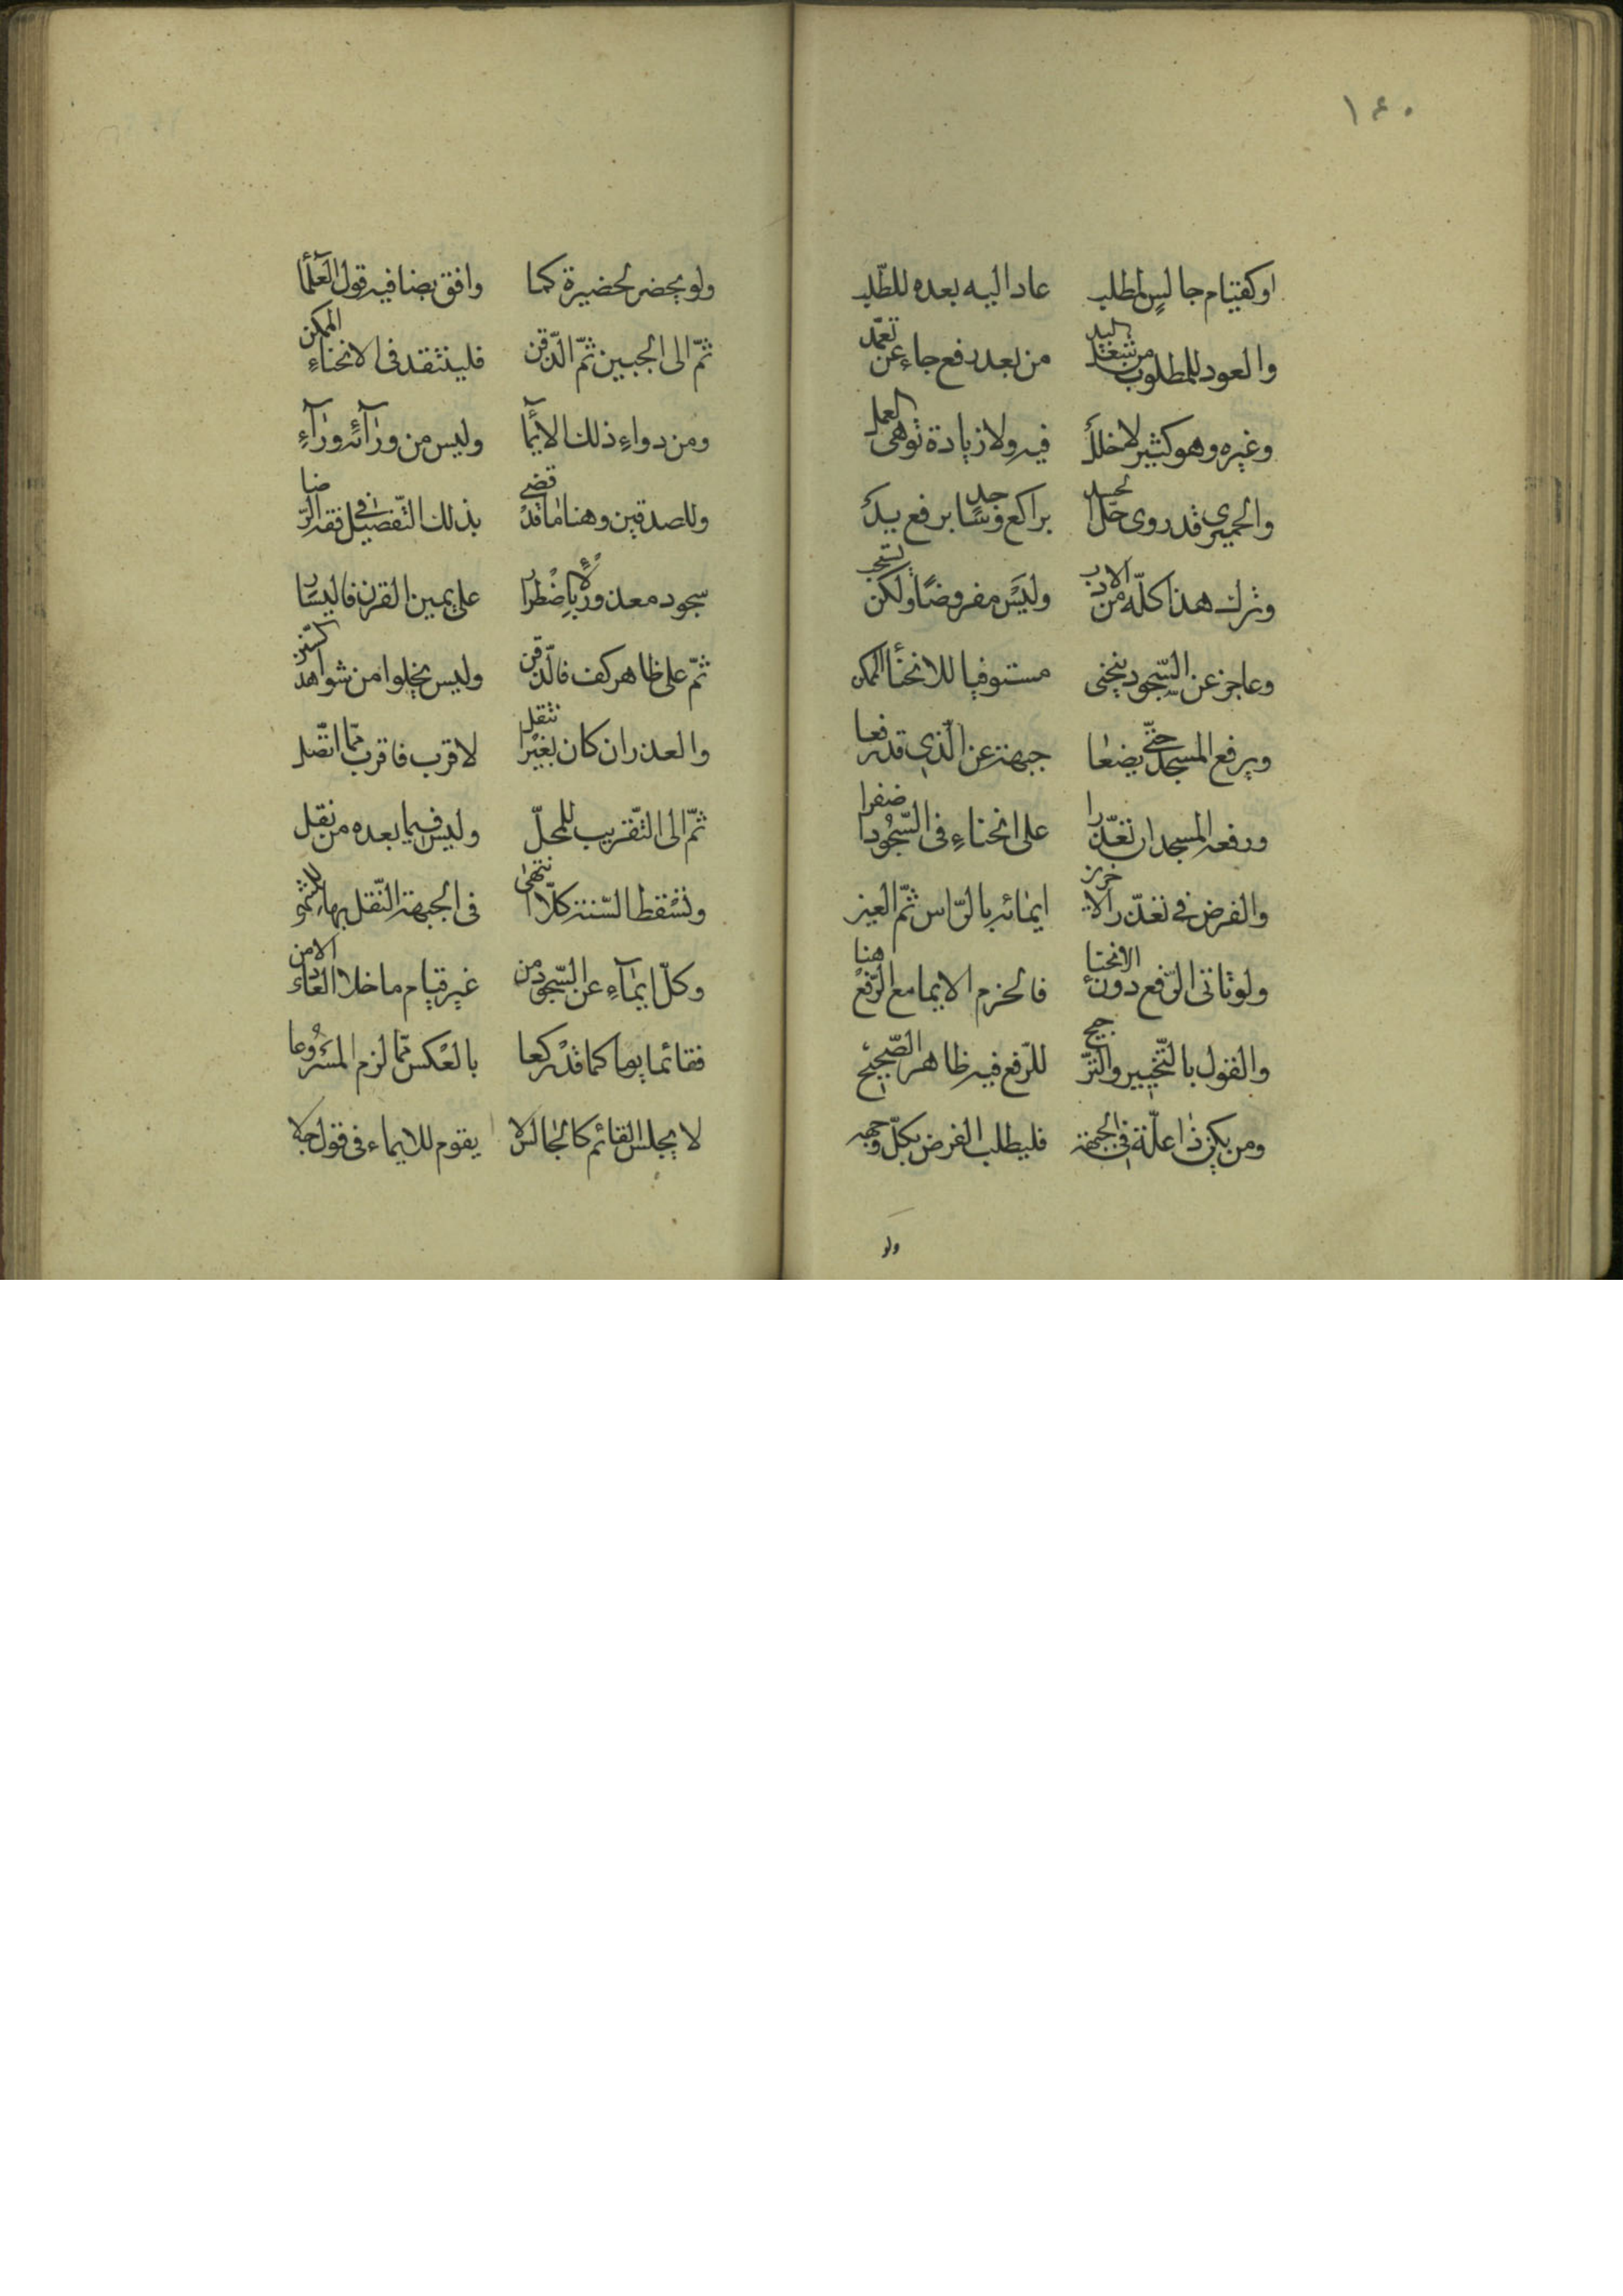 ١٤٠
اوكقيام جالسٍ لمطلب عاد اليه بعده للطّلب
والعود للمطلوب من بعد رفع جاء عن تعمّد
وغيره وهو كثير لا خلل فيه ولا زيادة توهى العمل
والحميرى قد روى براكع وساجد برفع يد
وترك هذا كلّه من الادب وليس مفروضًا ولكن يستحب
وعاجز عن السّجود ينحنى مستوفيا للانحنأ الممكن
ويرفع المسجد حتّى يضعا جبهته عن الّذى قد رفعا
ورفعه المسجد ان تعذّرا على انحناءٍ فى السّجود
والفرض فى تعذّر ايمائه بالرّاس ثمّ العين
ولو تاتى الرّفع دون الانحنا فالحزم الايما مع الرّفع هنا
والقول بالتّخيير والترجيح للرّفع فيه ظاهر الصّحيح
ومن يكن ذا علّة فى الجبهة فليطلب الفرض بكلّ وجهه
ولو
ولو بحضر لحضيرة كما وافق بضا فيه قول العلمآ
ثمّ الى الجبين ثمّ الذّقن فى الانحناءِ الممكن
ومن دواءِ ذلك الايمآ وليس من ورآئه ورآءِ
وللصدقين وهنا ما قد قضى بذلك التّفصيل فى فقه الرّضا
سجود معذور باضطرار على يمين القرن فاليسار
ثمّ على ظاهر كف فالذّقن وليس يخلوا من شواهد
والعذر ان كان بغير لا قرب فاقرب ممّا اتّصل
ثمّ الى التّقريب للمحلّ وليس فيما بعده من نقل
وتسقط السّنة كلّا فى الجبهة النّقل بها
وكلّ ايمآءِ عن السّجود من غير قيام ما خلا العارى الامن
فقائما يوما كما قد ركعا بالعكس ممّا لزم المشروعا
لا يجلس القائم كالجالس لا يقوم للايماء فى قول جلا